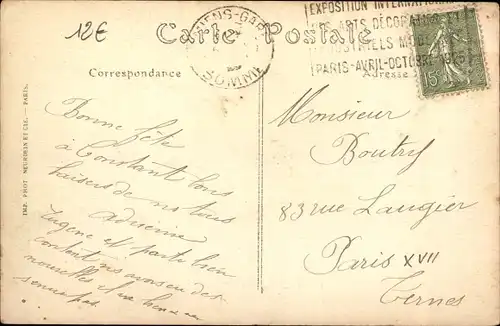 12€
Carte Postale
AMIENS-GARE
SOMME
EXPOSITION INTERNATIONALE
DES ARTS DÉCORATIFS ET
INDUSTRIELS MODERNES
PARIS-AVRIL-OCTOBRE 1925
15
Correspondance
Adresse
IMP. PHOT NEURDEIN ET CIE. — PARIS.
Bonne fête
à Constant bons
baisers de nous tous
Adrienne
Eugène est parti bien
content
nouvelles
pas
Monsieur
Boutry
83 rue Laugier
Paris XVII
Ternes